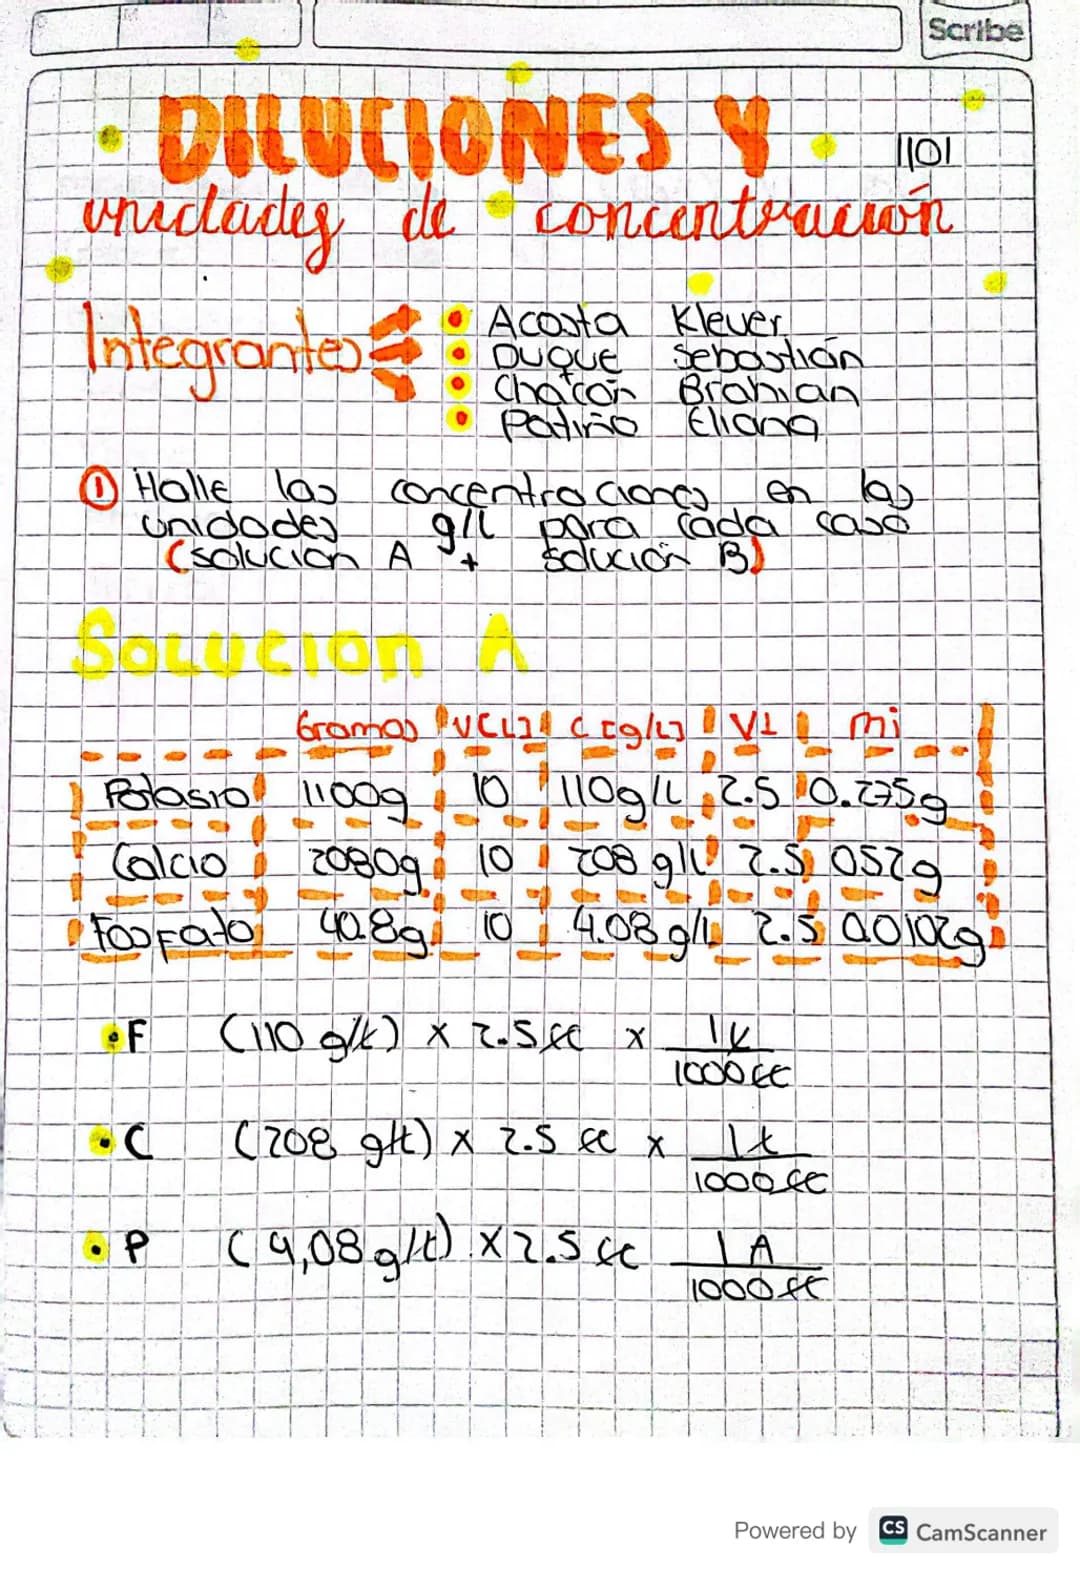 Scribe
DILUCIONES Y
1101
unidades de concentración
Integrantes
Acosta Klever
Duque Sebastián
Chacón Brahian
Patiño Eliana
① Halle las concentraciones en las
unidades g/L para cada caso
(solución A + solución B)
Solucion A
Gramos V[L] C [g/L] V1 mi
Potasio 1100g 10 110g/L 2.5 0.275g
Calcio 2080g 10 208 g/L 2.5 052g
Fosfato 40.8g 10 4.08 g/L 2.5 0.0102g
• F (110 g/L) x 2.5 cc x 1L
1000 cc
• C (208 g/L) x 2.5 cc x 1L
1000 cc
• P (4,08 g/L) x 2.5 cc 1
1000 cc
Powered by CS CamScanner